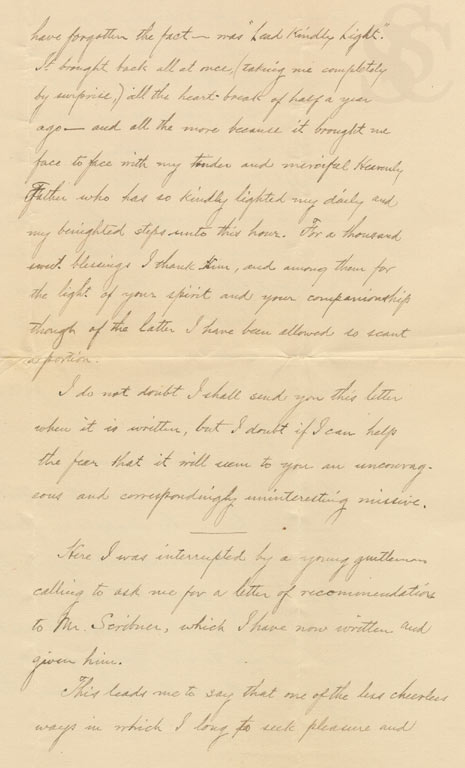 have forgotten the fact — was "Lead Kindly Light".
It brought back all at once, (taking me completely
by surprise,) all the heart-break of half a year
ago — and all the more because it brought me
face to face with my tender and merciful Heavenly
Father who has so kindly lighted my daily and
my benighted steps unto this hour. For a thousand
sweet blessings I thank Him, and among them for
the light of your spirit and your companionship
though of the latter I have been allowed so scant
a portion.
I do not doubt I shall send you this letter
when it is written, but I doubt if I can help
the fear that it will seem to you an uncourag-
eous and correspondingly uninteresting missive.
Here I was interrupted by a young gentleman
calling to ask me for a letter of recommendation
to Mr. Scribner, which I have now written and
given him.
This leads me to say that one of the less cheerless
ways in which I long to seek pleasure and